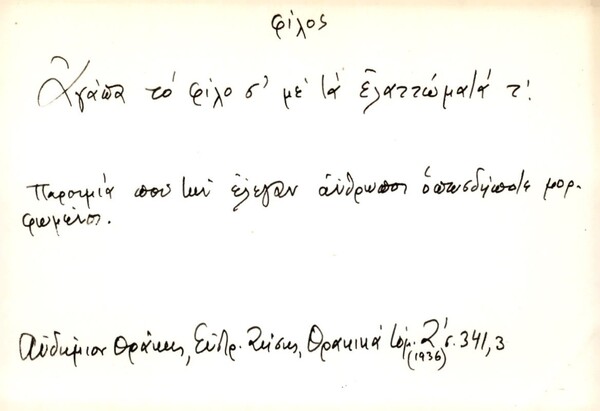 φίλος
Ἀγάπα τό φίλο σ' μέ τά ἐλαττώματά τ'.
Παροιμία πού τήν ἔλεγαν ἄνθρωποι ὁπωσδήποτε μορ-
φωμένοι.
Αὐδήμιον Θράκης, Εὐστρ. Ζήσης, Θρακικά τόμ. Ζ' σ. 341, 3
(1936)